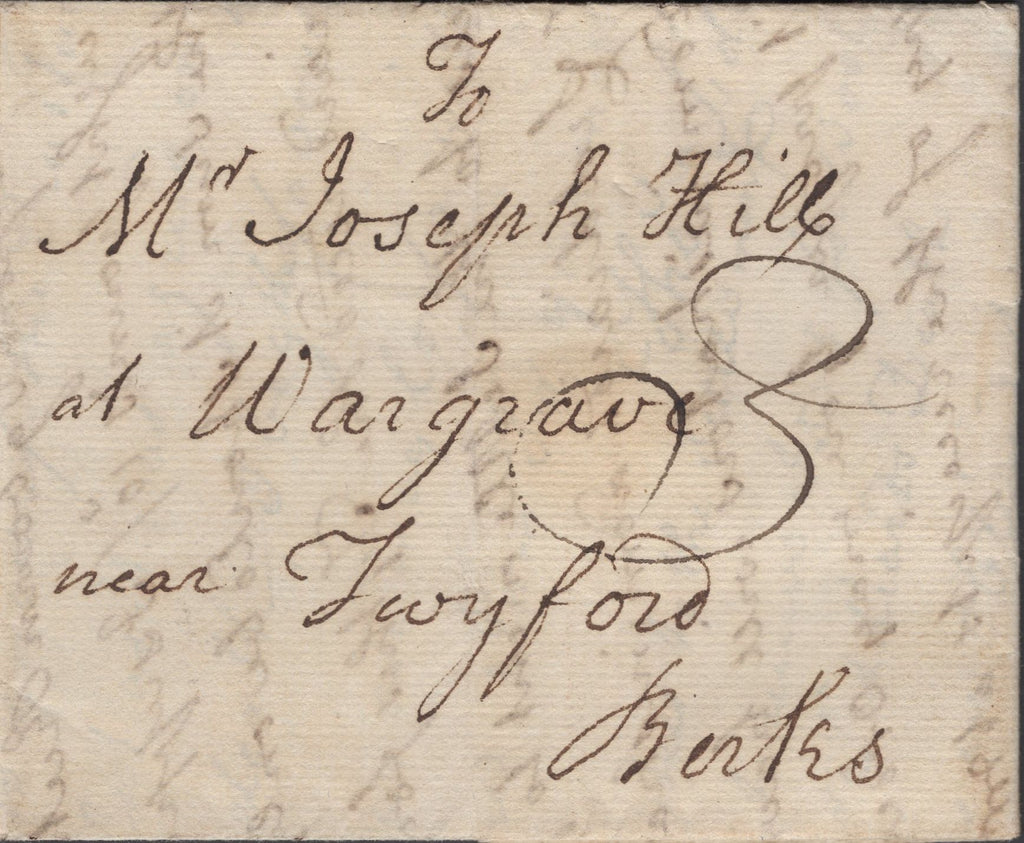 To
Mr Joseph Hill
at Wargrave
near Twyford
Berks